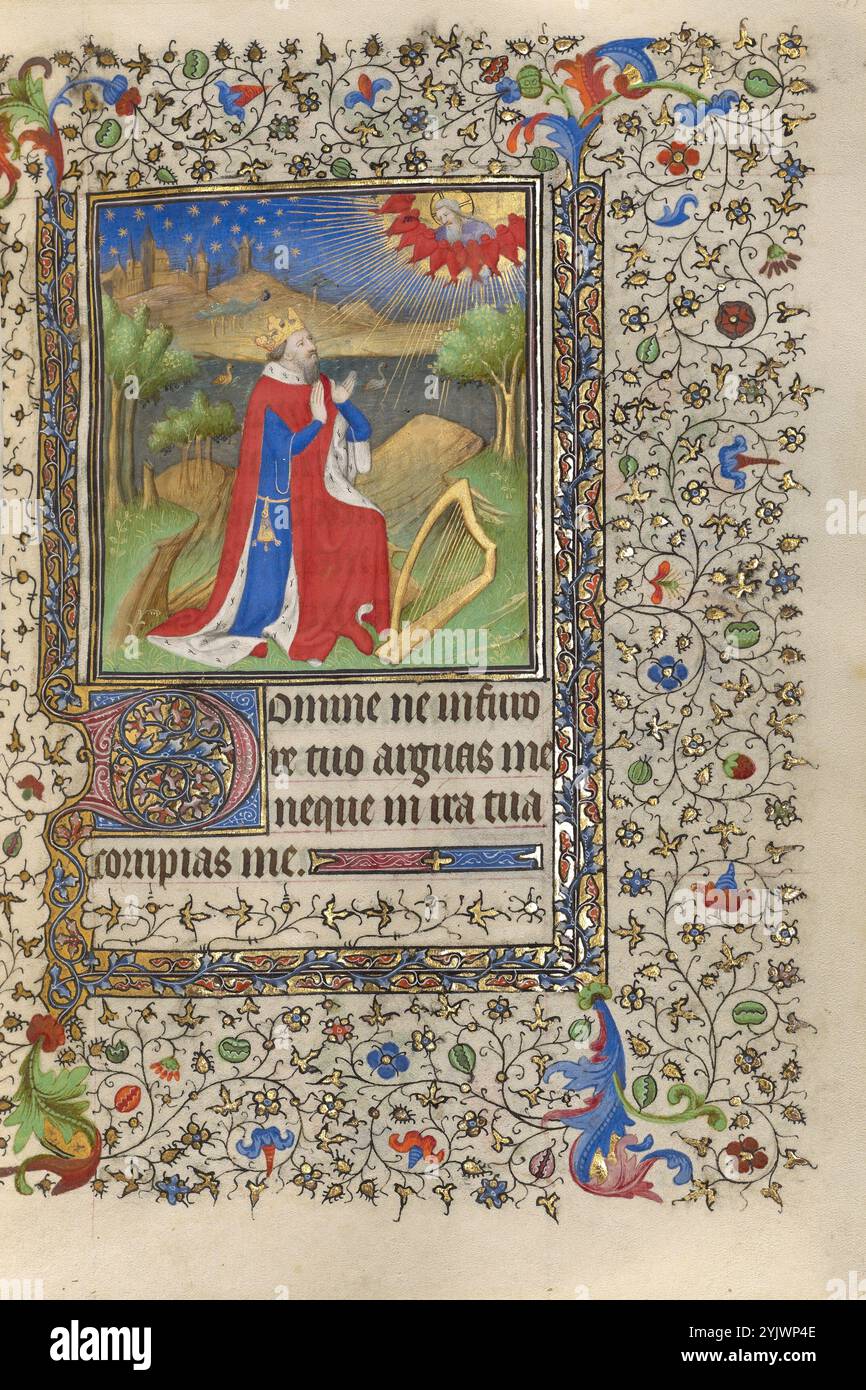 Domine ne in furo
re tuo arguas me
neque in ira tua
corripias me.
alamy
Image ID: 2YJWP4E
www.alamy.com